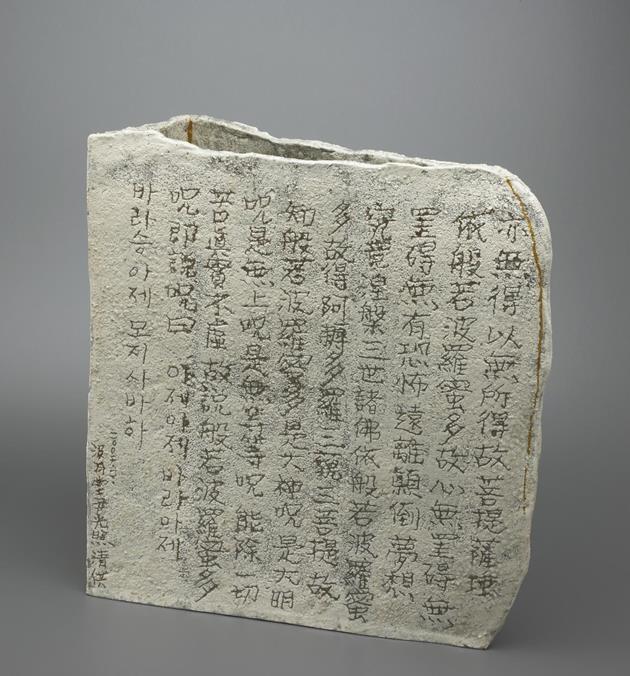 亦無得以無所得故菩提薩埵
依般若波羅蜜多故心無罣碍無
罣碍無有恐怖遠離顚倒夢想
究竟涅槃三世諸佛依般若波羅蜜
多故得阿耨多羅三藐三菩提故
知般若波羅蜜多是大神呪是大明
呪是無上呪是無等等呪能除一切
苦眞實不虛故說般若波羅蜜多
呪卽說呪曰 아제아제 바라아제
바라승아제 모지사바하
尹光照清供